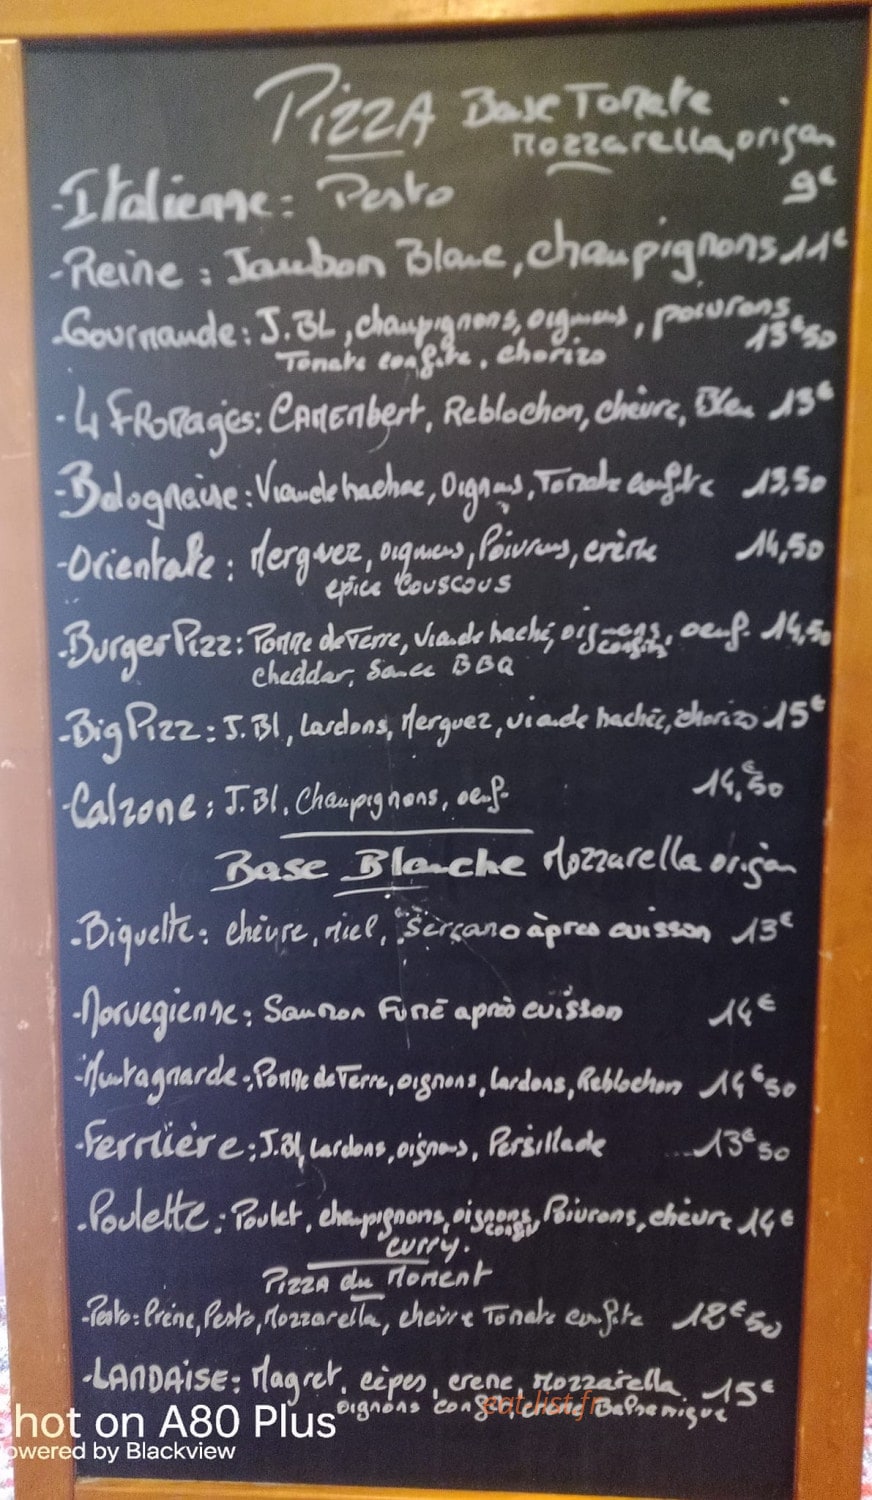 PIZZA Base Tomate
Mozzarella, origan
-Italienne : Pesto 9€
-Reine : Jambon Blanc, champignons 11€
-Gourmande : J.BL, champignons, oignons, poivrons
Tomate confite, chorizo 13€50
-4 FROMAGES : CAMEMBERT, Reblochon, chèvre, Bleu 13€
-Bolognaise : Viande hachée, Oignons, Tomate confite 13,50
-Orientale : Merguez, oignons, Poivrons, crème 14,50
epice Couscous
-Burger Pizz : Pomme de Terre, viande haché, oignons, oeuf. 14,50
confits
cheddar, Sauce BBQ
-Big Pizz : J.Bl, Lardons, Merguez, viande hachée, chorizo 15€
-Calzone : J.Bl, Champignons, oeuf 14,€50
Base Blanche Mozzarella origan
-Biquette : chèvre, miel, Serrano àpres cuisson 13€
-Norvegienne : Saumon Fumé après cuisson 14€
-Montagnarde : Pomme de Terre, oignons, Lardons, Reblochon 14€50
-Fermière : J.Bl, Lardons, oignons, Persillade 13€50
-Poulette : Poulet, champignons, oignons, Poivrons, chèvre 14€
confit
curry.
Pizza du Moment
-Pesto : Crème, Pesto, Mozzarella, chèvre Tomate confite 12€50
-LANDAISE : Magret, cèpes, creme, Mozzarella 15€
oignons confit, creme Balsamique
eat-list.fr
hot on A80 Plus
owered by Blackview